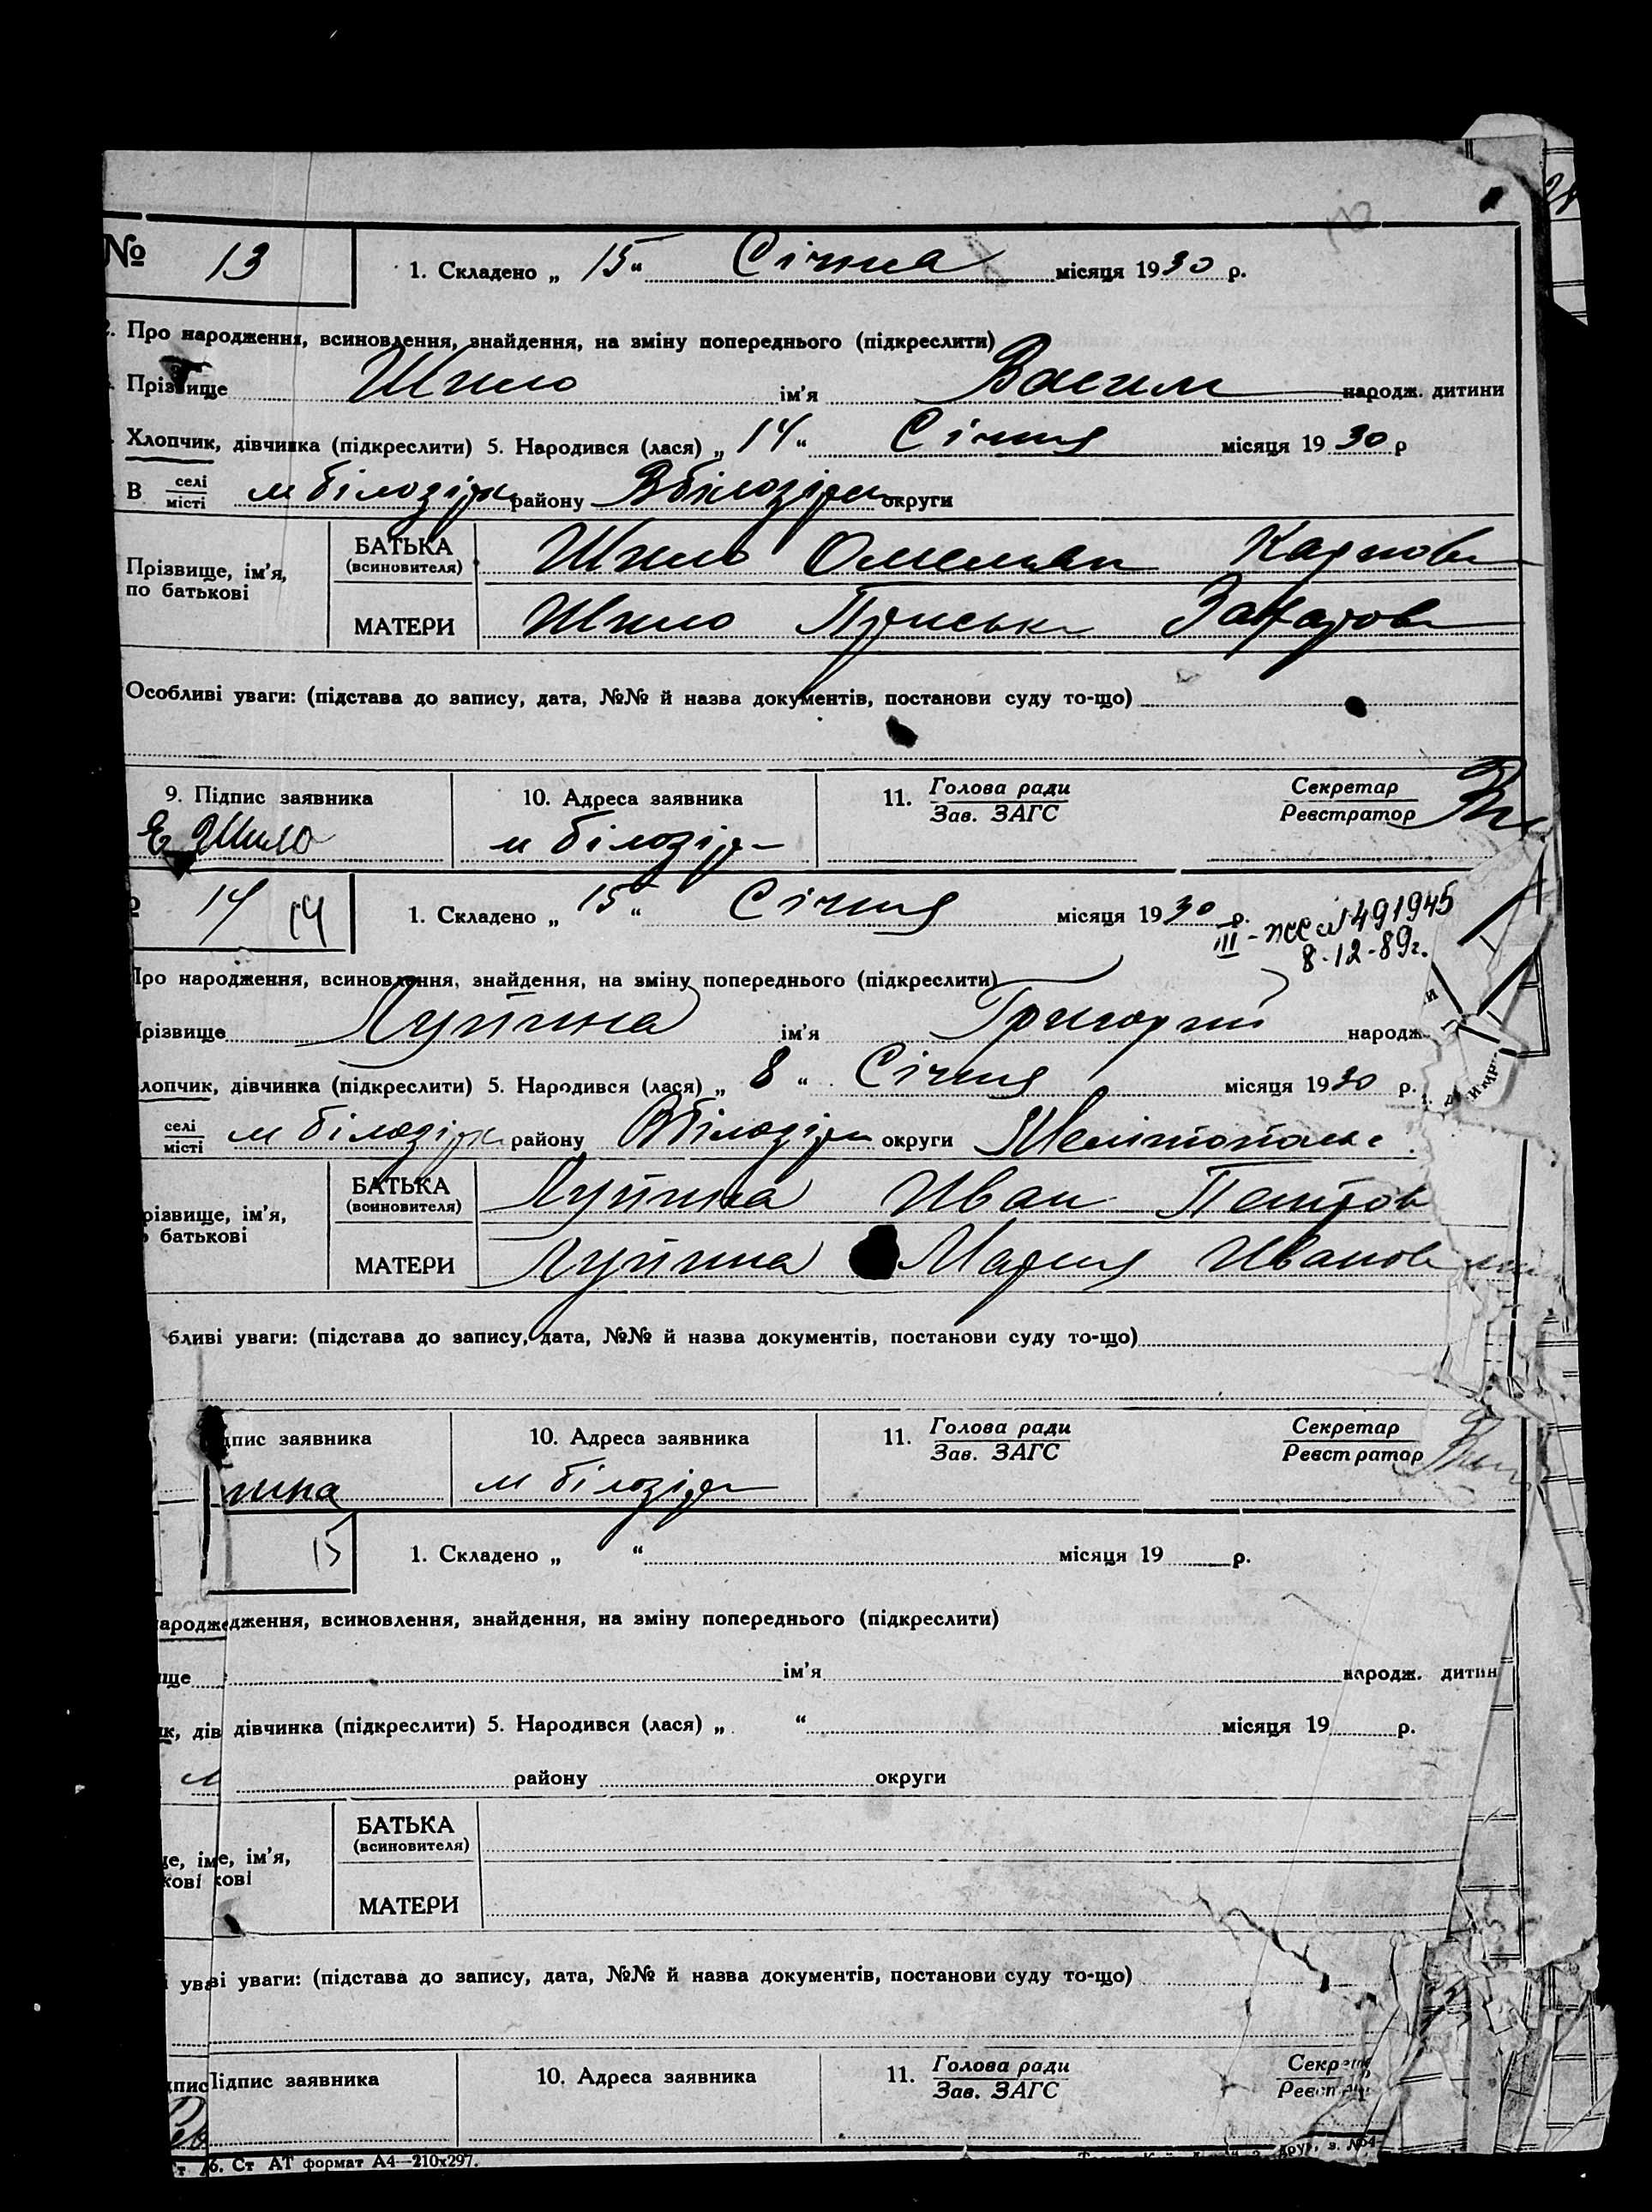 № 13
1. Складено „ 15 “ Січня місяця 1930 р.
2. Про народження, всиновлення, знайдення, на зміну попереднього (підкреслити)
Прізвище Шило ім'я Василь народж. дитини
Хлопчик, дівчинка (підкреслити) 5. Народився (лася) „ 14 “ Січня місяця 1930 р
В селі місті м білозірк району Вбілозірк округи
Прізвище, ім'я, по батькові
БАТЬКА (всиновителя) Шило Омелян Карпов
МАТЕРИ Шило Приська Захаров
Особливі уваги: (підстава до запису, дата, №№ й назва документів, постанови суду то-що)
9. Підпис заявника 10. Адреса заявника 11. Голова ради Зав. ЗАГС Секретар Реєстратор
Е Шило м білозір
14 14
1. Складено „ 15 “ Січня місяця 1930 р.
III - жс № 491945
8-12-89г.
Про народження, всиновлення, знайдення, на зміну попереднього (підкреслити)
прізвище Лупина ім'я Григорий народж
лопчик, дівчинка (підкреслити) 5. Народився (лася) „ 8 “ Січня місяця 1930 р.
селі місті м білозірк району Вбілозірк округи Мелітопольс
різвище, ім'я, батькові
БАТЬКА (всиновителя) Лупина Иван Петров
МАТЕРИ Лупина Мария Иванов
бливі уваги: (підстава до запису, дата, №№ й назва документів, постанови суду то-що)
дпис заявника 10. Адреса заявника 11. Голова ради Зав. ЗАГС Секретар Реєстратор
пина м білозір
15
1. Складено „ “ місяця 19 р.
ародже дження, всиновлення, знайдення, на зміну попереднього (підкреслити)
ище ім'я народж. дитин
ик, дів дівчинка (підкреслити) 5. Народився (лася) „ “ місяця 19 р.
м району округи
це, іме, ім'я,
кові кові
БАТЬКА (всиновителя)
МАТЕРИ
і уваві уваги: (підстава до запису, дата, №№ й назва документів, постанови суду то-що)
дпис Підпис заявника 10. Адреса заявника 11. Голова ради Зав. ЗАГС Секрет Реєст
6. Ст АТ формат А4—210х297.